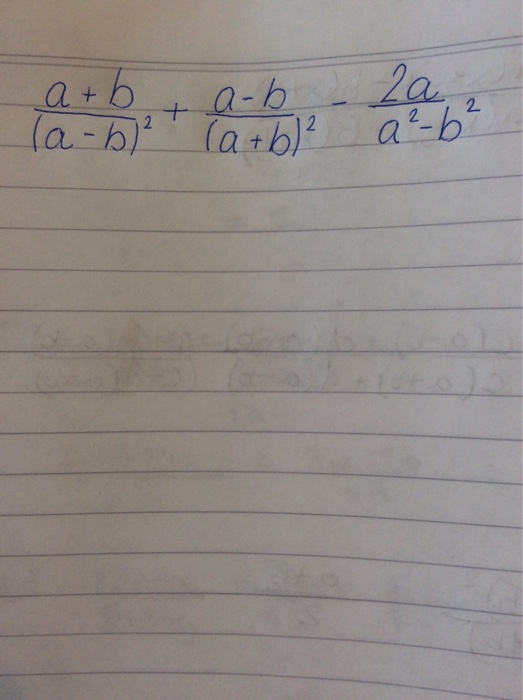 (a + b)/(a - b)² + (a - b)/(a + b)² - 2a/(a² - b²)